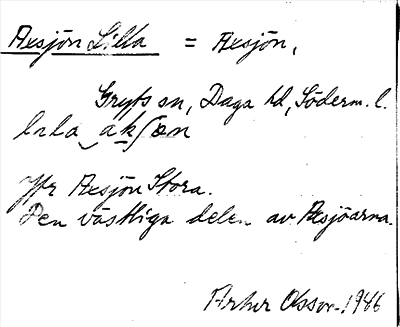 Axsjön Lilla = Axsjön,
Gryts sn, Daga hd, Söderm. l.
lɩla akʃøn
Jfr Axsjön Stora.
Den västliga delen av Axsjöarna.
Artur Olsson 1946